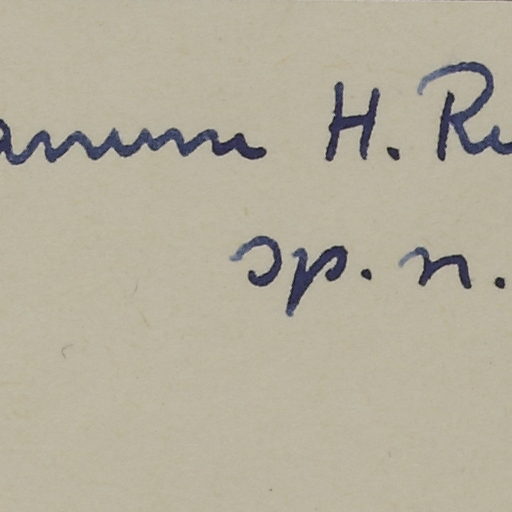 anum H. Re
sp. n.